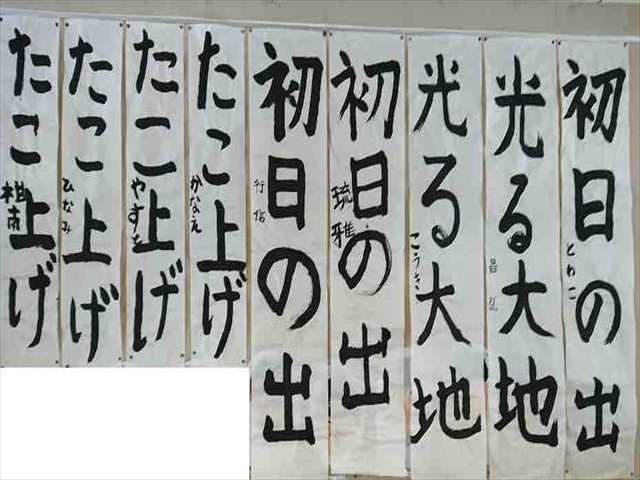 初日の出
とわこ
光る大地
昌弘
光る大地
こうき
初日の出
琉雅
初日の出
行信
たこ上げ
かなえ
たこ上げ
やすを
たこ上げ
ひなみ
たこ上げ